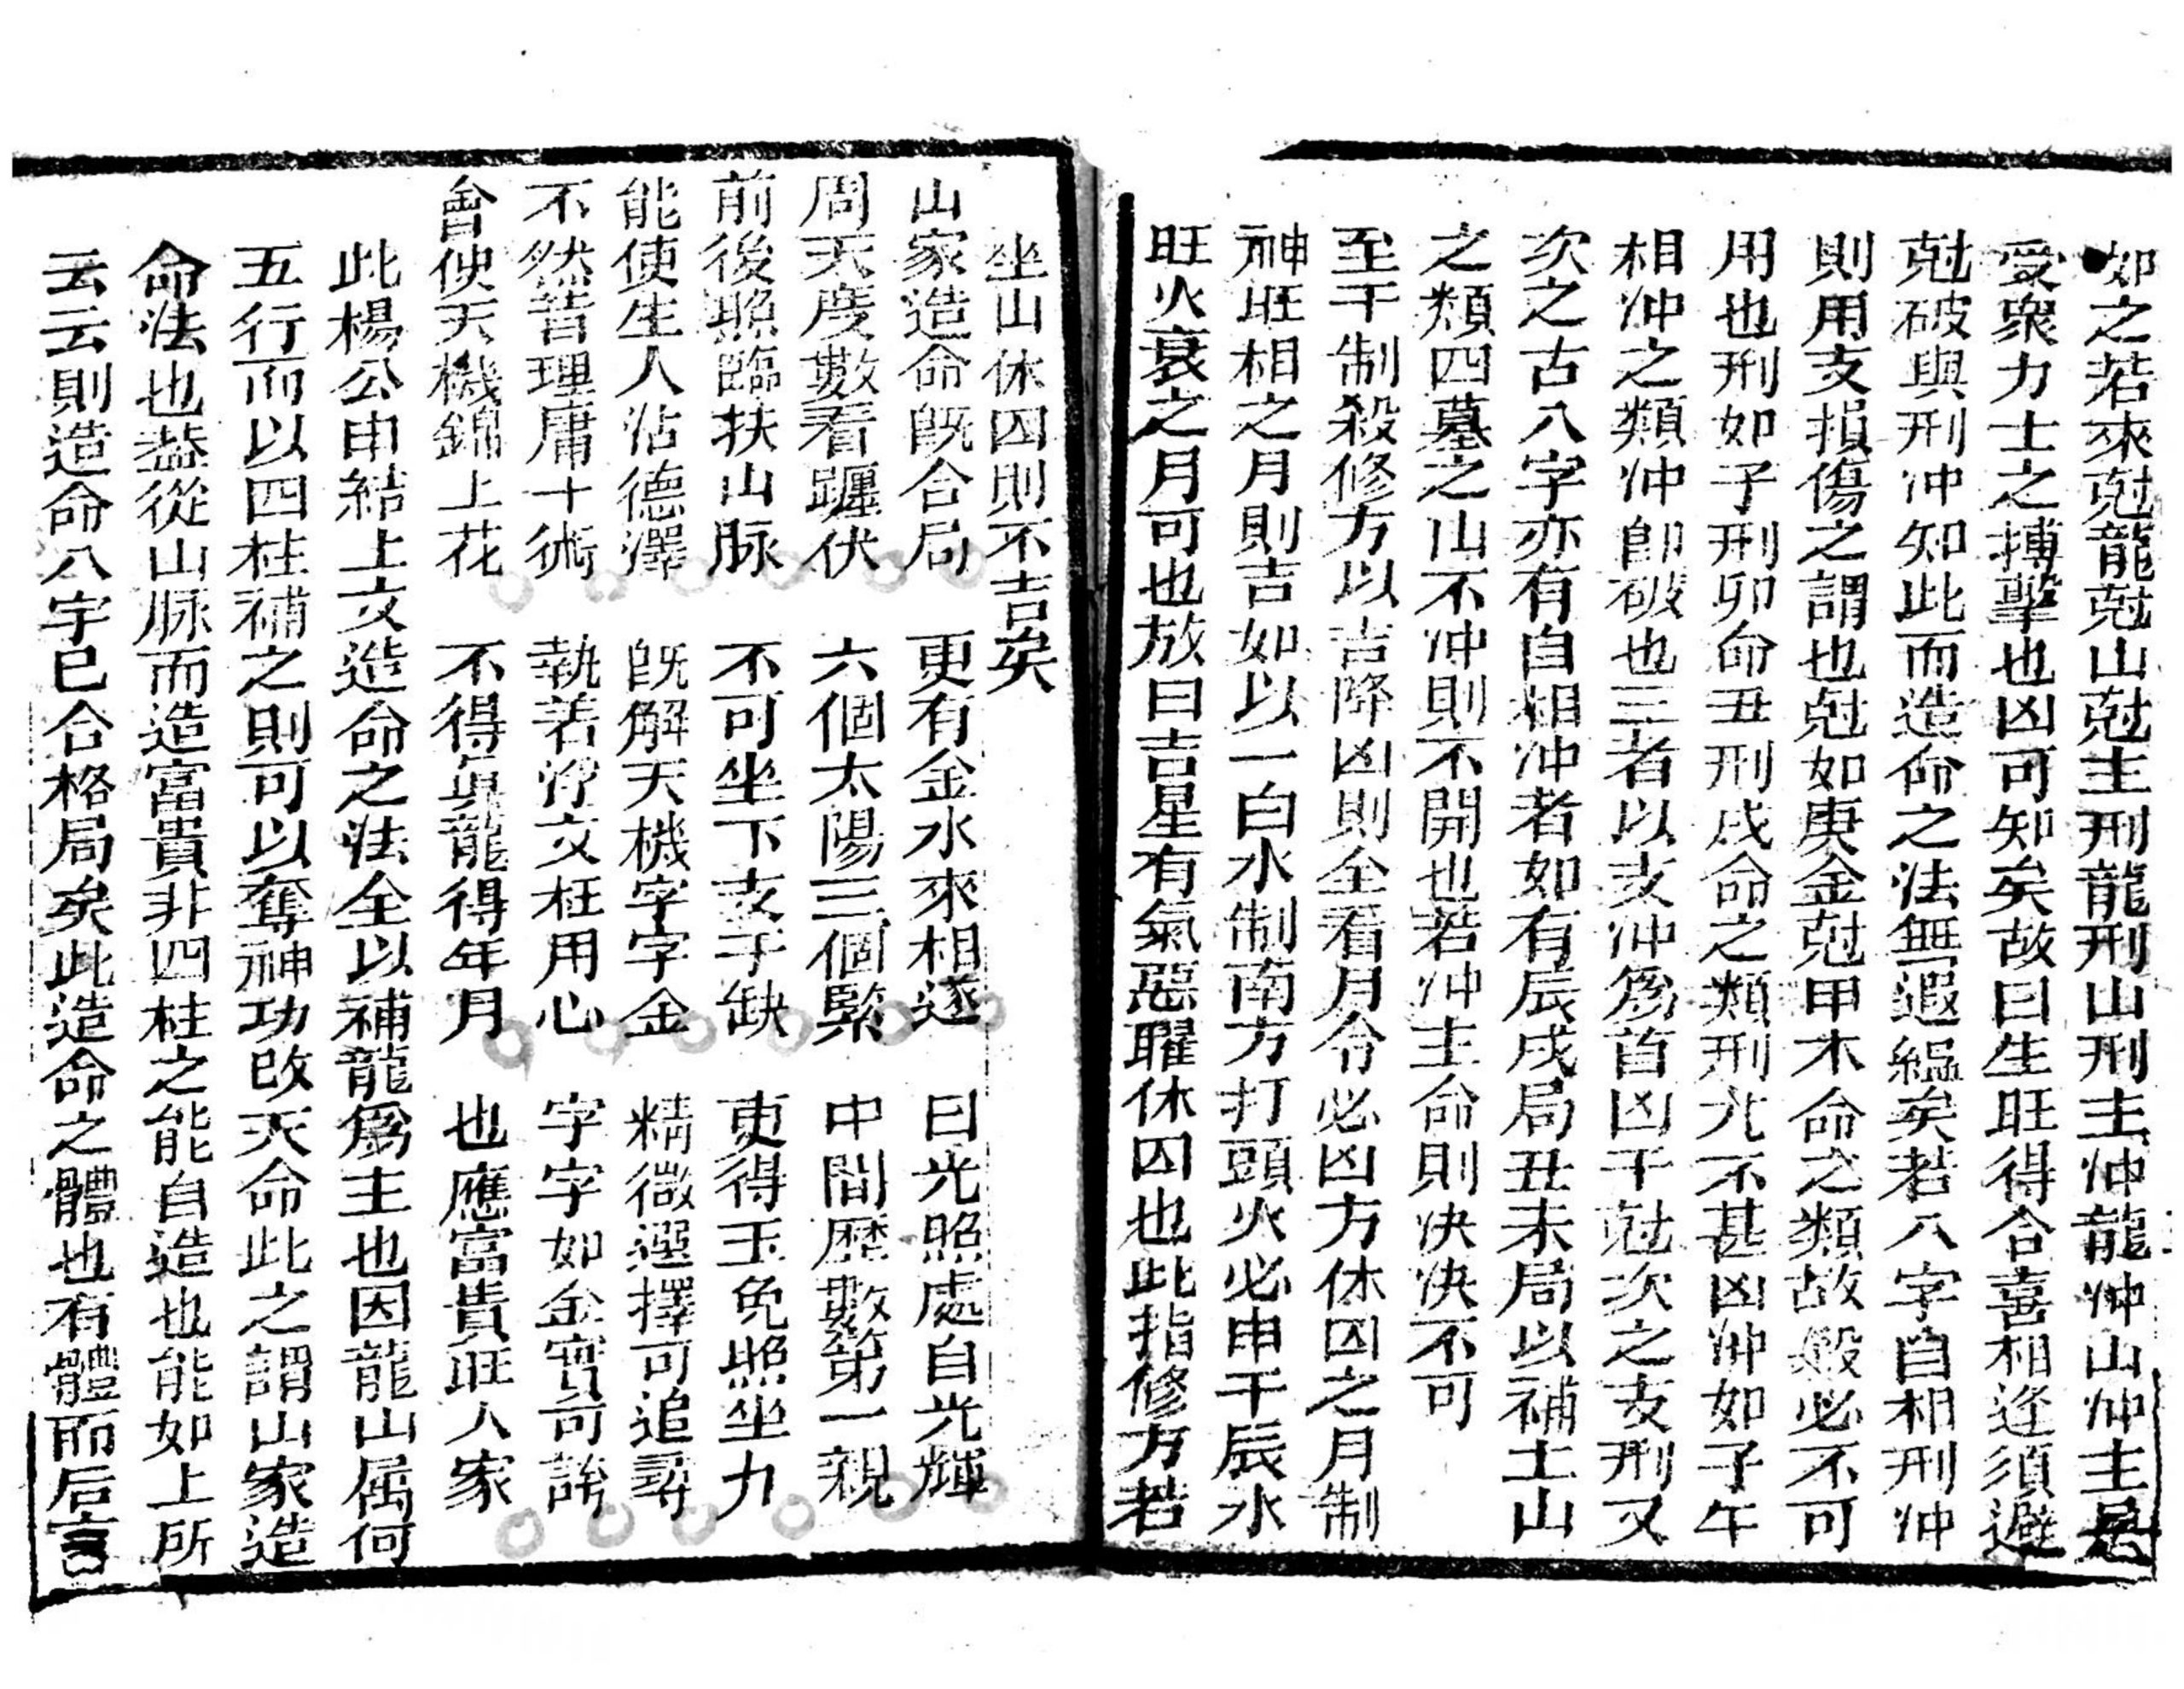 如之若來尅龍尅山尅主刑龍刑山刑主冲龍冲山冲主是
受衆力士之搏擊也凶可知矣故曰生旺得合喜相逢須避
尅破與刑冲知此而造命之法無遐縕矣若八字自相刑冲
則用支損傷之謂也尅如庚金尅甲木命之類故㱾必不可
用也刑如子刑卯命丑刑戌命之類刑尤不甚凶冲如子午
相冲之類冲卽破也三者以支冲爲首凶干尅次之支刑又
次之古八字亦有自相冲者如有辰戌局丑未局以補土山
之類四墓之山不冲則不開也若冲主命則决决不可
至于制殺修方以吉降凶則全看月令必凶方休囚之月制
神旺相之月則吉如以一白水制南方打頭火必申干辰水
旺火衰之月可也放曰吉星有氣惡曜休囚也此指修方若
坐山休囚則不吉矣
山家造命旣合局 更有金水來相逐 日光照處自光輝
周天度數看躔伏 六個太陽三個緊 中間歷數第一親
前後照臨扶山脉 不可坐下支于缺 更得玉兔照坐力
能使生人沾德澤 旣解天機字字金 精微選擇可追尋
不然昔理庸十術 執若浮文枉用心 字字如金實可誇
會使天機錦上花 不得眞龍得年月 也應富貴旺人家
此楊公申結上文造命之法全以補龍爲主也因龍山属何
五行而以四柱補之則可以奪神功改天命此之謂山家造
命法也葢從山脉而造富貴非四柱之能自造也能如上所
云云則造命八字已合格局矣此造命之體也有體而后言